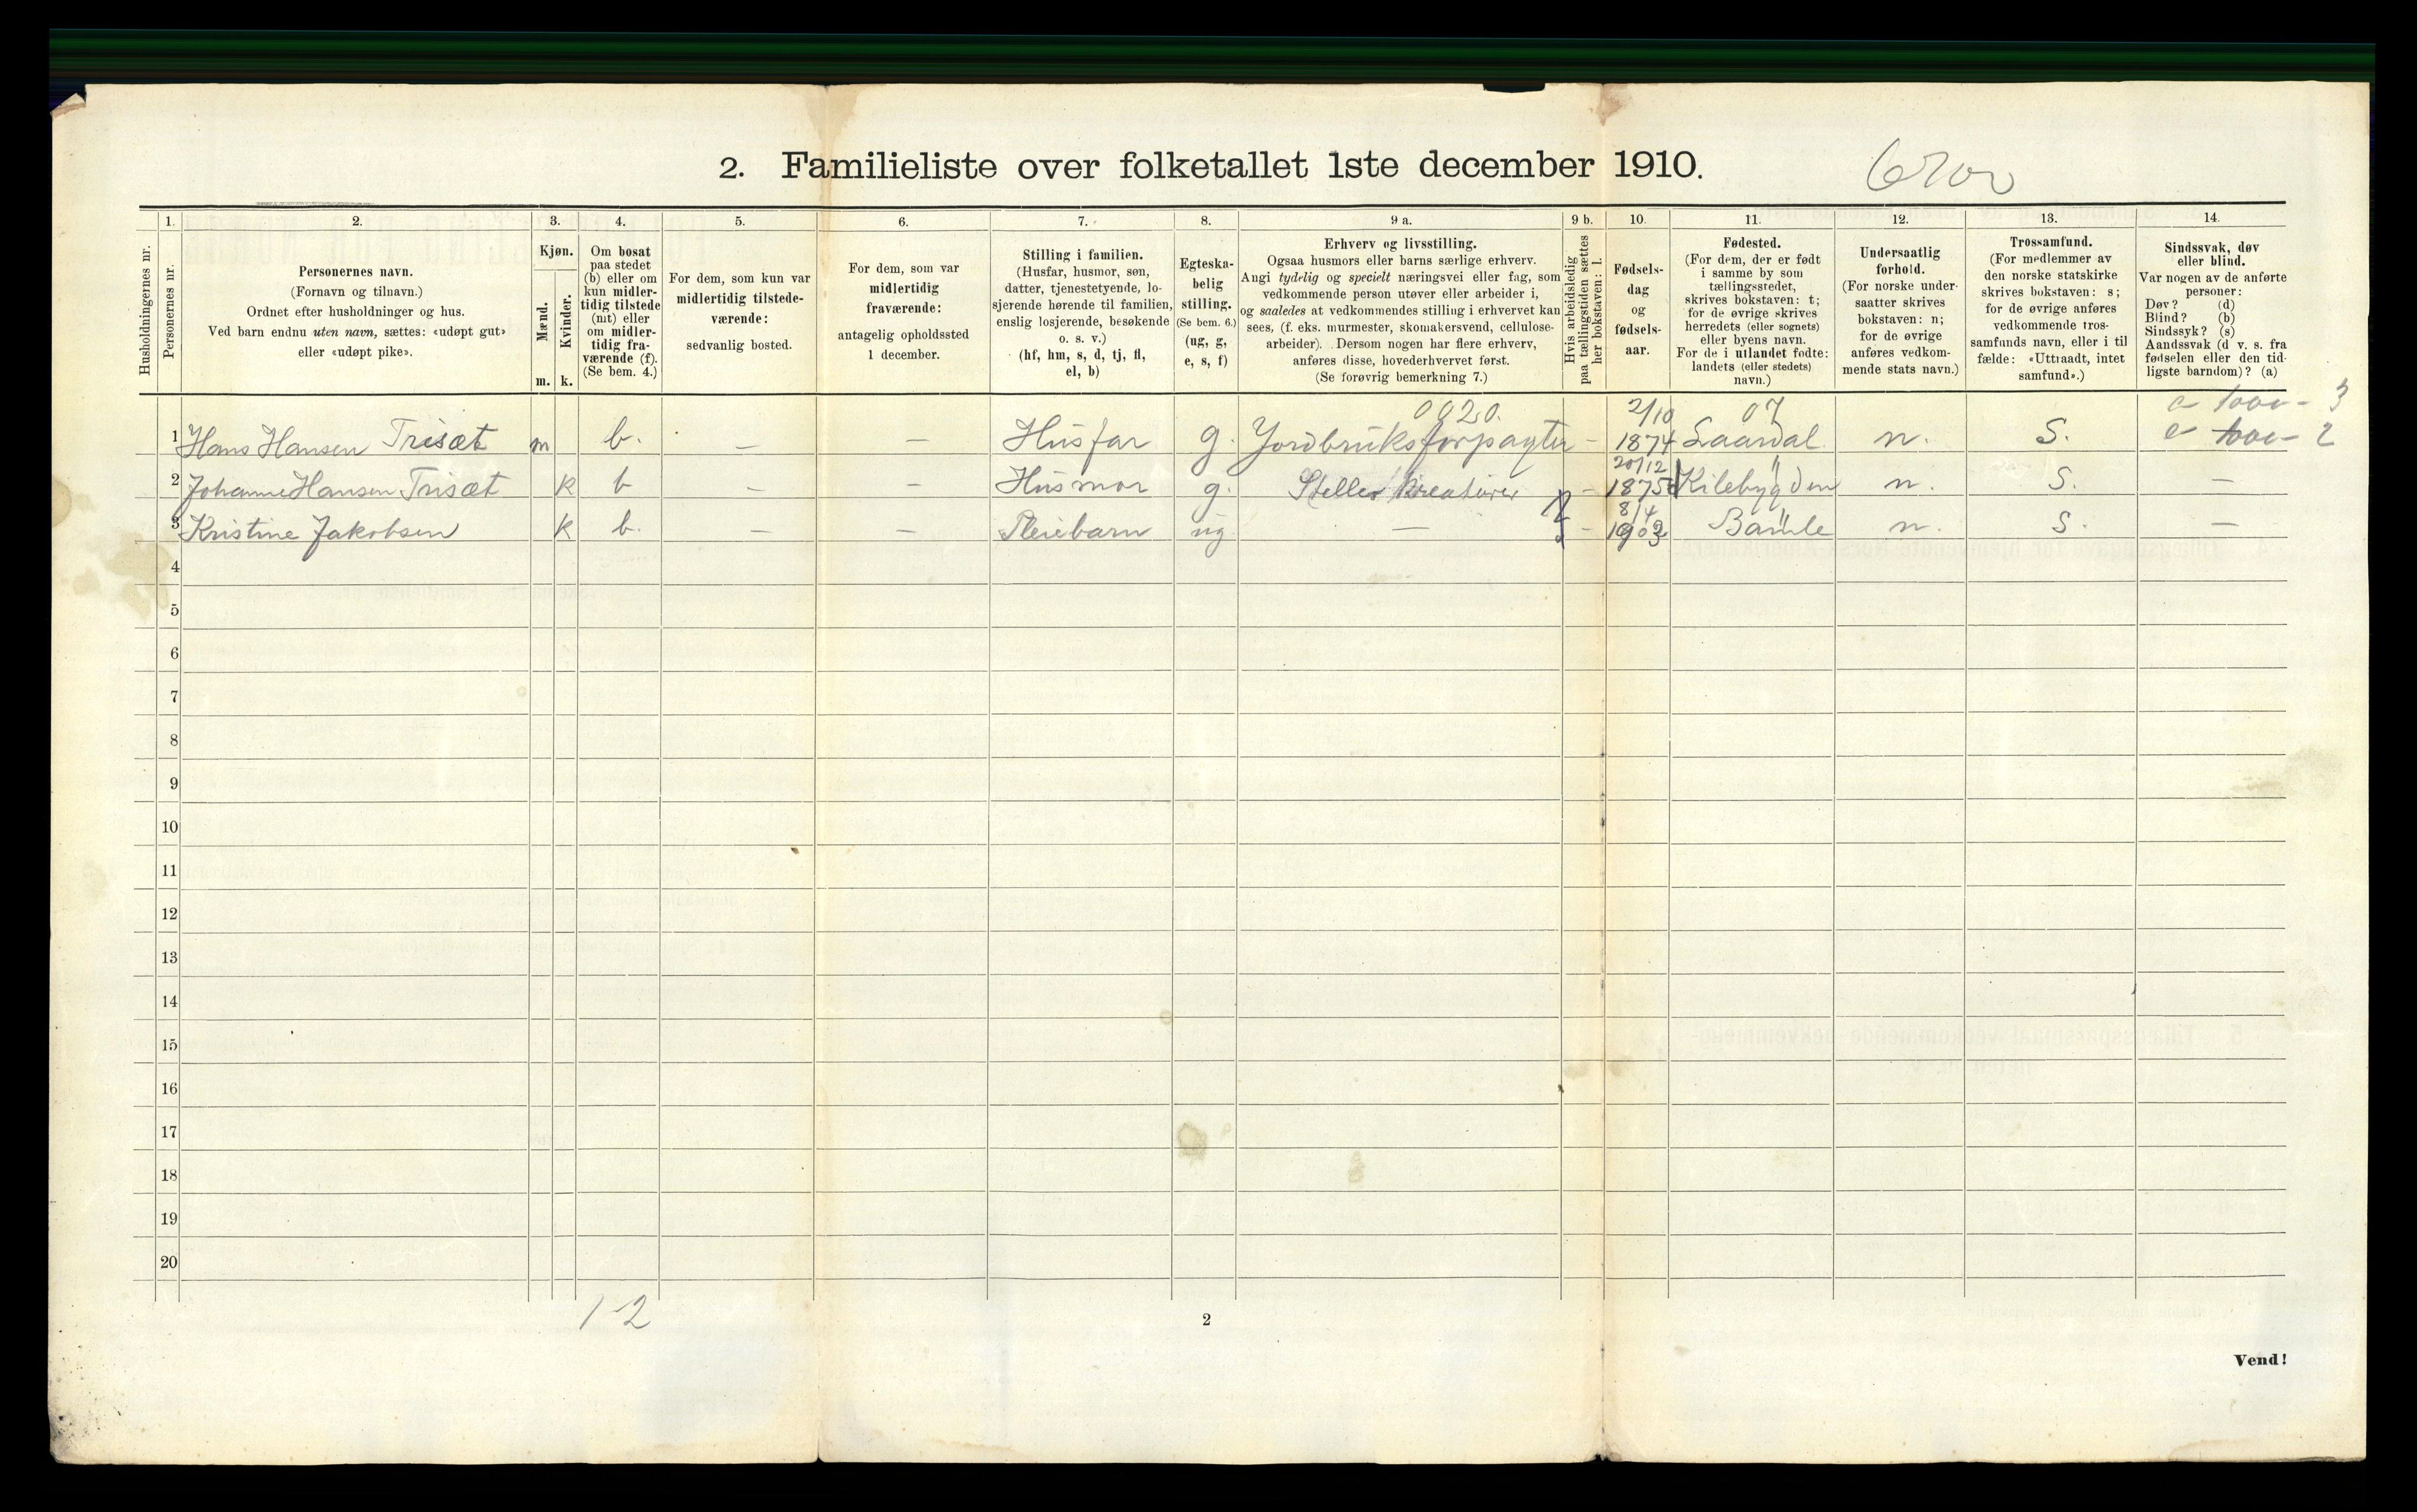 2. Familieliste over folketallet 1ste december 1910.
1. 2. 3. 4. 5. 6. 7. 8. 9 a. 9 b. 10. 11. 12. 13. 14.
Husholdningernes nr.
Personernes nr.
Personernes navn.
(Fornavn og tilnavn.)
Ordnet efter husholdninger og hus.
Ved barn endnu uten navn, sættes: «udøpt gut»
eller «udøpt pike».
Kjøn.
Mænd.
Kvinder.
m. k.
Om bosat
paa stedet
(b) eller om
kun midler-
tidig tilstede
(mt) eller
om midler-
tidig fra-
værende (f).
(Se bem. 4.)
For dem, som kun var
midlertidig tilstede-
værende:
sedvanlig bosted.
For dem, som var
midlertidig
fraværende:
antagelig opholdssted
1 december.
Stilling i familien.
(Husfar, husmor, søn,
datter, tjenestetyende, lo-
sjerende hørende til familien,
enslig losjerende, besøkende
o. s. v.)
(hf, hm, s, d, tj, fl,
el, b)
Egteska-
belig
stilling.
(Se bem. 6.)
(ug, g,
e, s, f)
Erhverv og livsstilling.
Ogsaa husmors eller barns særlige erhverv.
Angi tydelig og specielt næringsvei eller fag, som
vedkommende person utøver eller arbeider i,
og saaledes at vedkommendes stilling i erhvervet kan
sees, (f. eks. murmester, skomakersvend, cellulose-
arbeider). Dersom nogen har flere erhverv,
anføres disse, hovederhvervet først.
(Se forøvrig bemerkning 7.)
Hvis arbeidsledig
paa tællingstiden sættes
her bokstaven: l.
Fødsels-
dag
og
fødsels-
aar.
Fødested.
(For dem, der er født
i samme by som
tællingsstedet,
skrives bokstaven: t;
for de øvrige skrives
herredets (eller sognets)
eller byens navn.
For de i utlandet fødte:
landets (eller stedets)
navn.)
Undersaatlig
forhold.
(For norske under-
saatter skrives
bokstaven: n;
for de øvrige
anføres vedkom-
mende stats navn.)
Trossamfund.
(For medlemmer av
den norske statskirke
skrives bokstaven: s;
for de øvrige anføres
vedkommende tros-
samfunds navn, eller i til
fælde: «Uttraadt, intet
samfund».)
Sindssvak, døv
eller blind.
Var nogen av de anførte
personer:
Døv? (d)
Blind? (b)
Sindssyk? (s)
Aandssvak (d v. s. fra
fødselen eller den tid-
ligste barndom)? (a)
0920. 2/10 07
1 Hans Hansen Trisæt m b. — — Husfar g. Jordbruksforpagter - 1874 Laardal. n. S.
20/12 "
2 Johanne Hansen Trisæt k b - - Husmor g. Steller kreaturer - 1875 Kilebygden n. S. —
8/4 "
3 Kristine Jakobsen k b. — — Pleiebarn ug — - 1903 Bamle n. S. —
4
5
6
7
8
9
10
11
12
13
14
15
16
17
18
19
20
1-2
2
Vend!